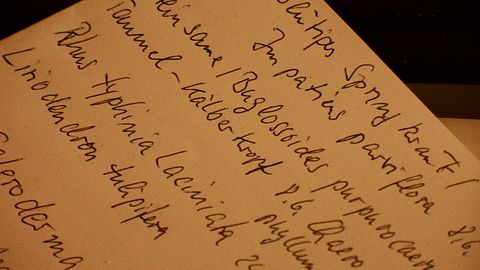 lütiges Springkraut /
Impatiens parviflora 8.6.
einsame / Buglossoides purpurocaeru
Taumel-Kälberkropf 8.6. Chaero
phyllum
Rhus typhinia Laciniata
Liriodendron tulipifera
leroderma